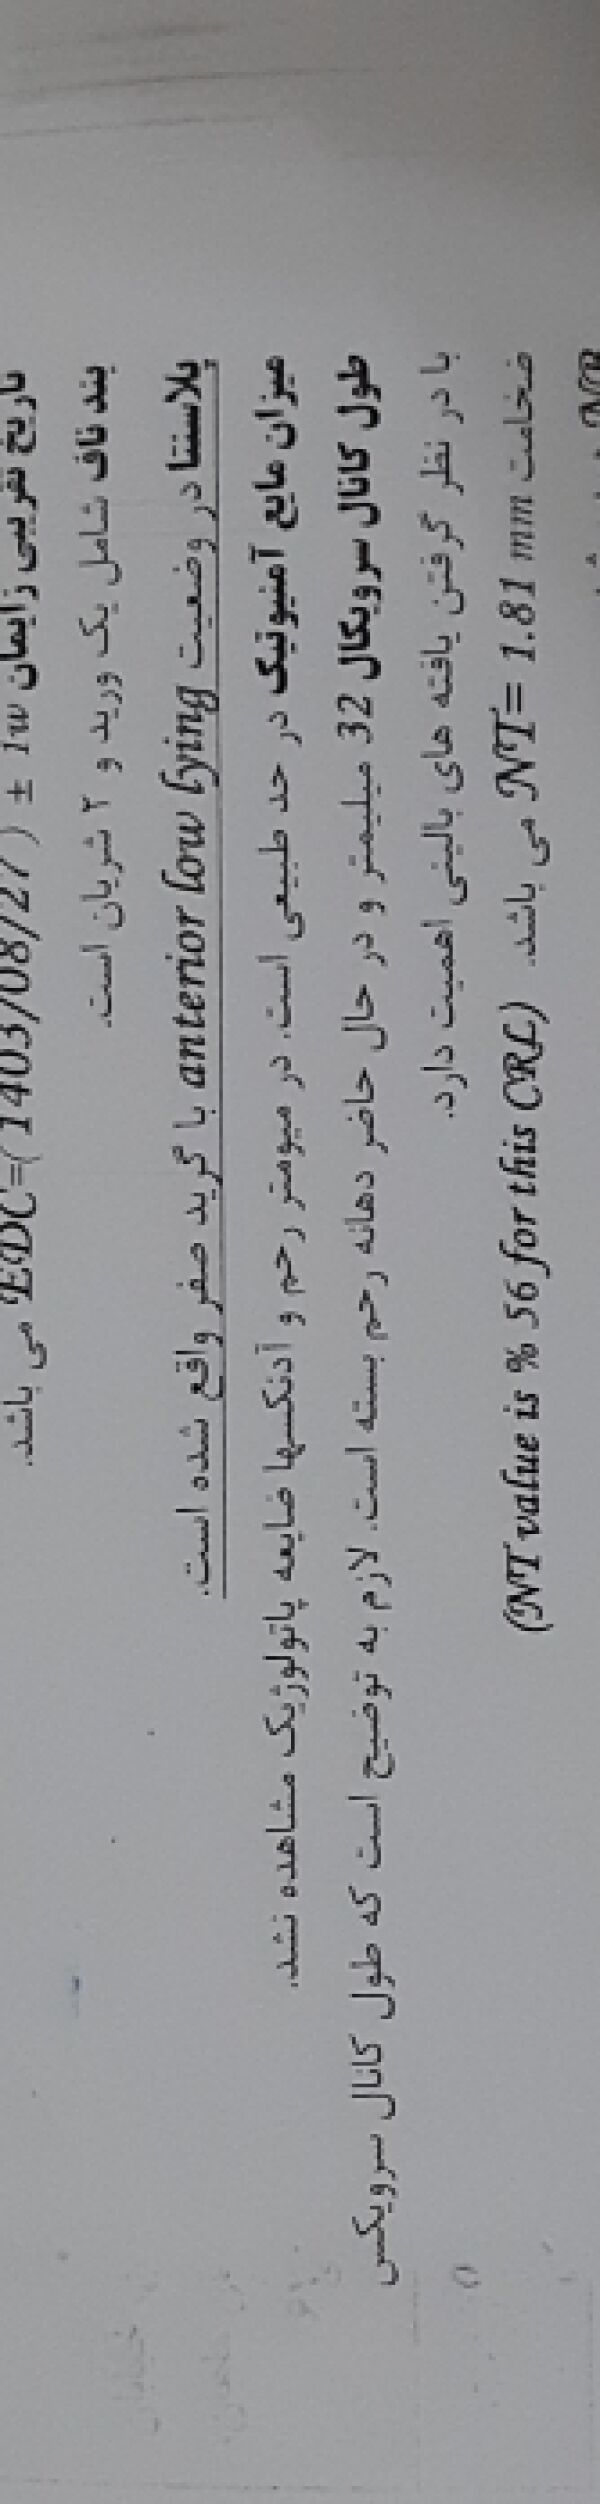 تاریخ تقریبی زایمان EDC=( 1403/08/27 ) ± 1w می باشد.
بند ناف شامل یک ورید و ۲ شریان است.
پلاسنتا در وضعیت anterior low lying با گرید صفر واقع شده است.
میزان مایع آمنیوتیک در حد طبیعی است. در میومتر رحم و آدنکسها ضایعه پاتولوژیک مشاهده نشد.
طول کانال سرویکال 32 میلیمتر و در حال حاضر دهانه رحم بسته است. لازم به توضیح است که طول کانال سرویکس
با در نظر گرفتن یافته های بالینی اهمیت دارد.
ضخامت NT= 1.81 mm می باشد. (NT value is % 56 for this CRL)